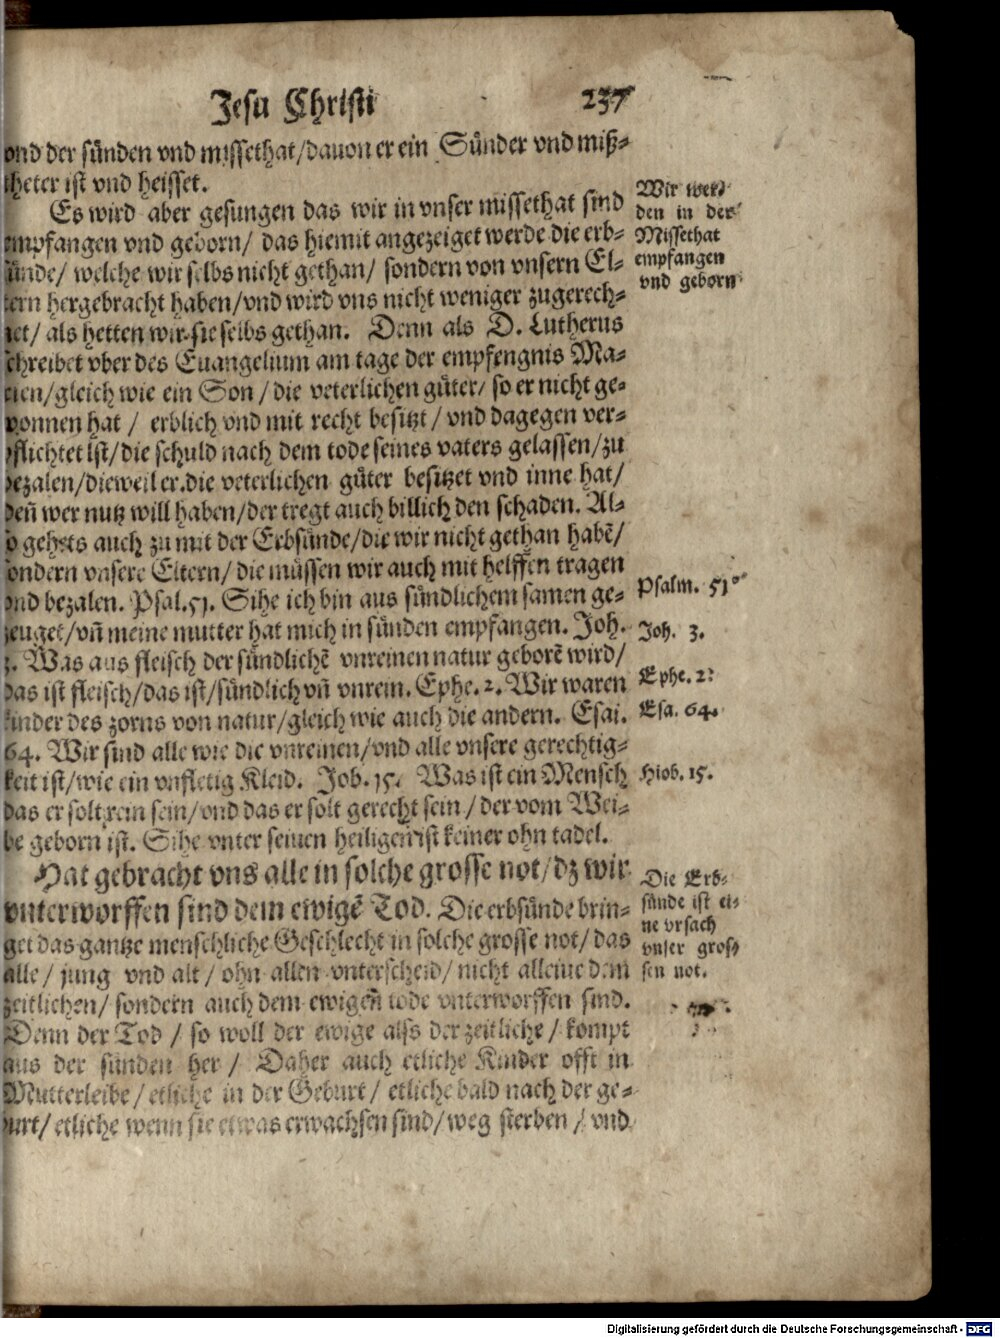 Jesu Christi 237
vnd der sünden vnd missethat/dauon er ein Sünder vnd miß-
theter ist vnd heisset.
Es wird aber gesungen das wir in vnser missethat sind
empfangen vnd geborn/ das hiemit angezeiget werde die erb-
sünde/ welche wir selbs nicht gethan/ sondern von vnsern El-
tern hergebracht haben/vnd wird vns nicht weniger zugerech-
net/ als hetten wir sie selbs gethan. Denn als D. Lutherus
schreibet vber des Euangelium am tage der empfengnis Ma-
rien/gleich wie ein Son / die veterlichen güter/ so er nicht ge-
wonnen hat / erblich vnd mit recht besitzt / vnd dagegen ver-
pflichtet ist/die schuld nach dem tode seines vaters gelassen/zu
bezalen/dieweil er die veterlichen güter besitzet vnd inne hat/
deñ wer nutz will haben/der tregt auch billich den schaden. Al-
so gehets auch zu mit der Erbsünde/die wir nicht gethan habẽ/
sondern vnsere Eltern/ die müssen wir auch mit helffen tragen
vnd bezalen. Psal.51. Sihe ich bin aus sündlichem samen ge-
zeuget/vñ meine mutter hat mich in sünden empfangen. Joh.
3. Was aus fleisch der sündlichẽ vnreinen natur geborẽ wird/
das ist fleisch/das ist/sündlich vñ vnrein. Ephe. 2. Wir waren
kinder des zorns von natur/gleich wie auch die andern. Esai.
64. Wir sind alle wie die vnreinen/vnd alle vnsere gerechtig-
keit ist/wie ein vnfletig Kleid. Job. 15. Was ist ein Mensch
das er solt rein sein/vnd das er solt gerecht sein / der vom Wei-
be geborn ist. Sihe vnter seinen heiligen ist keiner ohn tadel.
Hat gebracht vns alle in solche grosse not/dz wir
vnterworffen sind dem ewigẽ Tod. Die erbsünde brin-
get das gantze menschliche Geschlecht in solche grosse not/ das
alle / jung vnd alt / ohn allen vnterscheid/ nicht alleine dem
zeitlichen/ sondern auch dem ewigen tode vnterworffen sind.
Denn der Tod / so woll der ewige alss der zeitliche / kompt
aus der sünden her / Daher auch etliche Kinder offt in
Mutterleibe / etliche in der Geburt / etliche bald nach der ge-
burt/ etliche wenn sie etwas erwachsen sind/ weg sterben / vnd
Wir wer-
den in der
Missethat
empfangen
vnd geborn
Psalm. 51.
Joh. 3.
Ephe. 2.
Esa. 64.
Hiob. 15.
Die Erb-
sünde ist ei-
ne vrsach
vnser gros-
sen not.
Digitalisierung gefördert durch die Deutsche Forschungsgemeinschaft - DFG